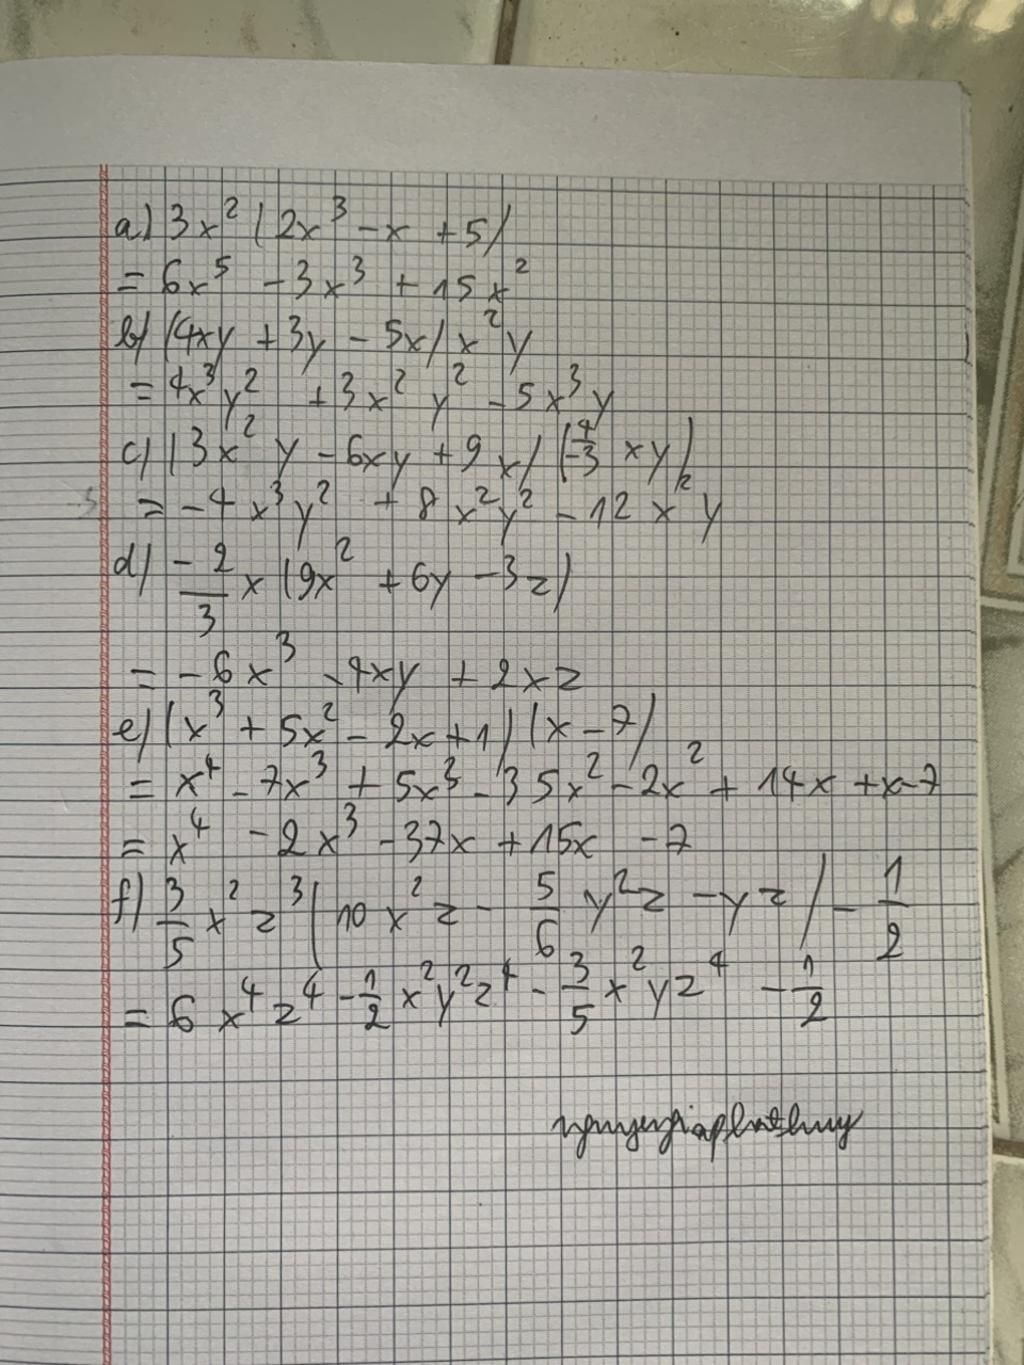 a) 3x² (2x³ - x + 5)
= 6x⁵ - 3x³ + 15x²
b) (4xy + 3y - 5x) x²y
= 4x³y² + 3x²y² - 5x³y
c) (3x²y - 6xy + 9x) (4/-3 xy)
= -4x³y² + 8x²y² - 12x²y
d) -2/3 x (9x² + 6y - 3z)
= -6x³ - 4xy + 2xz
e) (x³ + 5x² - 2x + 1) (x - 7)
= x⁴ - 7x³ + 5x³ - 35x² - 2x² + 14x + x - 7
= x⁴ - 2x³ - 37x + 15x - 7
f) 3/5 x² z³ (10x²z - 5/6 y²z - yz) - 1/2
= 6x⁴z⁴ - 1/2 x²y²z⁴ - 3/5 x²yz⁴ - 1/2